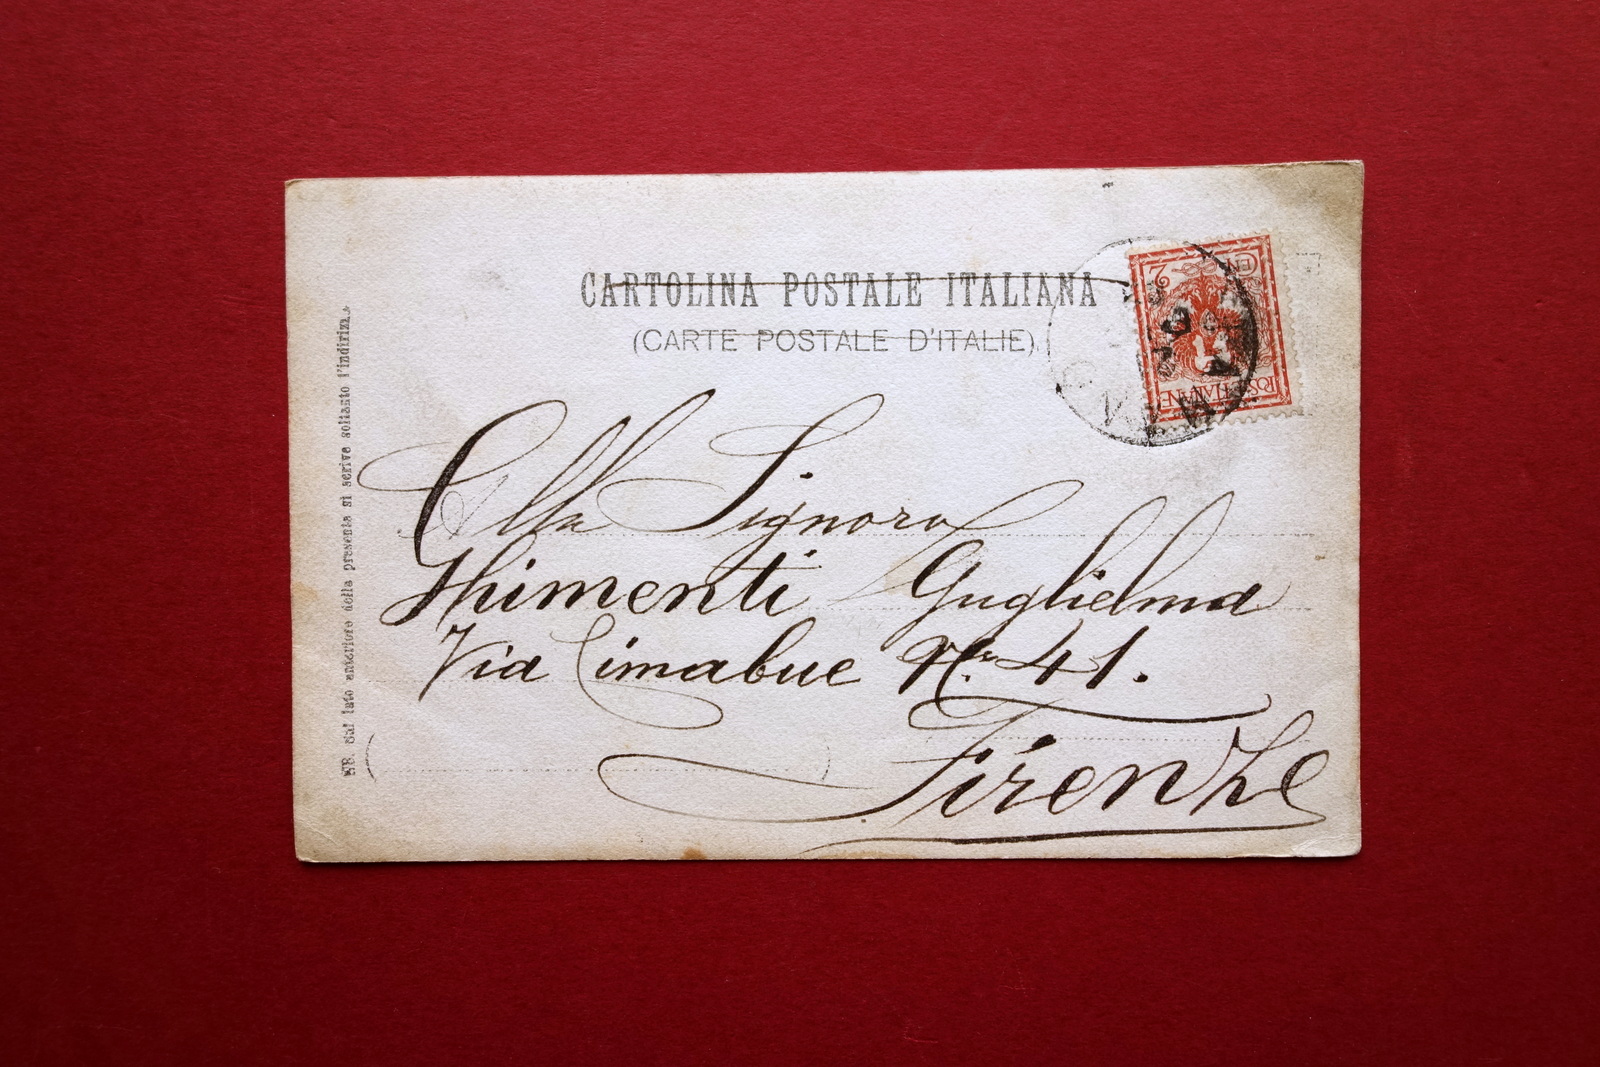 CARTOLINA POSTALE ITALIANA
(CARTE POSTALE D'ITALIE)
NB. dal lato anteriore della presente si scrive soltanto l'indirizzo
CEN. 2
POSTE ITALIANE
Alla Signora
Ghimenti Guglielma
Via Cimabue Nr. 41.
Firenze